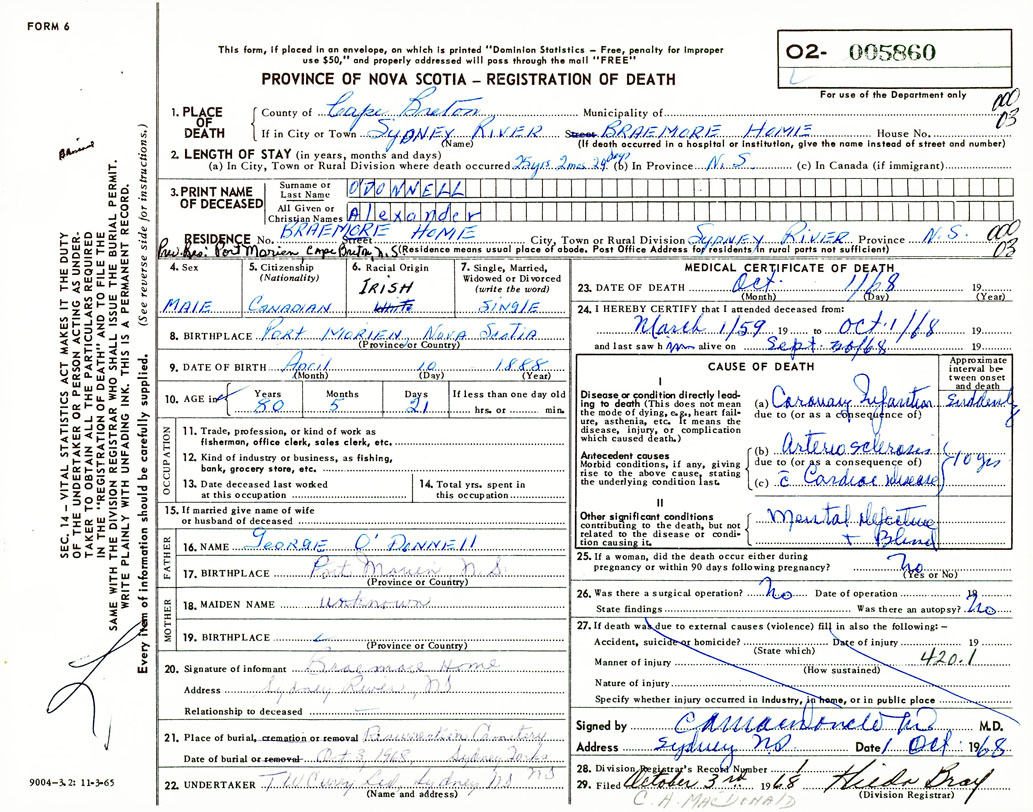 FORM 6
This form, if placed in an envelope, on which is printed "Dominion Statistics – Free, penalty for improper
use $50," and properly addressed will pass through the mail "FREE"
PROVINCE OF NOVA SCOTIA – REGISTRATION OF DEATH
02- 005860
For use of the Department only
000
03
1. PLACE OF DEATH
County of Cape Breton Municipality of
If in City or Town SYDNEY RIVER Street BRAEMORE HOME House No.
(Name) (If death occurred in a hospital or institution, give the name instead of street and number)
2. LENGTH OF STAY (in years, months and days)
(a) In City, Town or Rural Division where death occurred 25yrs 2mos 29days (b) In Province N.S (c) In Canada (if immigrant)
3. PRINT NAME OF DECEASED
Surname or Last Name O'DONNELL
All Given or Christian Names Alexander
RESIDENCE No. BRAEMORE HOME Street City, Town or Rural Division SYDNEY RIVER Province N.S. 000
03
Prev. Res: Port Morien, Cape Breton N.S (Residence means usual place of abode. Post Office Address for residents in rural parts not sufficient)
4. Sex
MALE
5. Citizenship
(Nationality)
CANADIAN
6. Racial Origin
IRISH
White
7. Single, Married,
Widowed or Divorced
(write the word)
SINGLE
8. BIRTHPLACE PORT MORIEN, NOVA SCOTIA
(Province or Country)
9. DATE OF BIRTH April 10 1888
(Month) (Day) (Year)
10. AGE in
Years Months Days If less than one day old
80 5 21 hrs. or min.
OCCUPATION
11. Trade, profession, or kind of work as
fisherman, office clerk, sales clerk, etc.
12. Kind of industry or business, as fishing,
bank, grocery store, etc.
13. Date deceased last worked
at this occupation
14. Total yrs. spent in
this occupation
15. If married give name of wife
or husband of deceased
FATHER
16. NAME GEORGE O'DONNELL
17. BIRTHPLACE Port Morien N.S.
(Province or Country)
MOTHER
18. MAIDEN NAME unknown
19. BIRTHPLACE
(Province or Country)
20. Signature of informant Braemore Home
Address Sydney River, NS
Relationship to deceased
21. Place of burial, cremation or removal Resurrection Cemetery
Date of burial or removal Oct 3, 1968 Sydney Forks
NS
22. UNDERTAKER T W Curry Ltd, Sydney NS
(Name and address)
MEDICAL CERTIFICATE OF DEATH
23. DATE OF DEATH Oct. 1/68 19
(Month) (Day) (Year)
24. I HEREBY CERTIFY that I attended deceased from:
March 1/59 19 to Oct. 1/68 19
and last saw him alive on Sept. 30/68 19
CAUSE OF DEATH
Approximate interval between onset and death
I
Disease or condition directly leading to death (This does not mean
the mode of dying, e.g., heart failure, asthenia, etc. It means the
disease, injury, or complication
which caused death.)
(a) Coronary Infarction Suddenly
due to (or as a consequence of)
Antecedent causes
Morbid conditions, if any, giving
rise to the above cause, stating
the underlying condition last.
(b) Arteriosclerosis
due to (or as a consequence of) 10 yrs
(c) c Cardiac disease
II
Other significant conditions
contributing to the death, but not
related to the disease or condition causing it.
Mental defective
+ Blind
25. If a woman, did the death occur either during
pregnancy or within 90 days following pregnancy? No
(Yes or No)
26. Was there a surgical operation? No Date of operation 19
State findings Was there an autopsy? No
27. If death was due to external causes (violence) fill in also the following: –
Accident, suicide or homicide? Date of injury 19
(State which)
Manner of injury 420.1
(How sustained)
Nature of injury
Specify whether injury occurred in Industry, in home, or in public place
Signed by M.D.
Address Sydney NS Date 1 Oct 1968
28. Division Registrar's Record Number 1
29. Filed October 3rd 1968 Hilda Bray
(Division Registrar)
C. A. MacDONALD
SEC. 14 – VITAL STATISTICS ACT MAKES IT THE DUTY
OF THE UNDERTAKER OR PERSON ACTING AS UNDERTAKER TO OBTAIN ALL THE PARTICULARS REQUIRED
IN THE "REGISTRATION OF DEATH" AND TO FILE THE
SAME WITH THE DIVISION REGISTRAR WHO SHALL ISSUE THE BURIAL PERMIT.
WRITE PLAINLY WITH UNFADING INK. THIS IS A PERMANENT RECORD.
Every item of information should be carefully supplied. (See reverse side for instructions.)
9004-3.2: 11-3-65